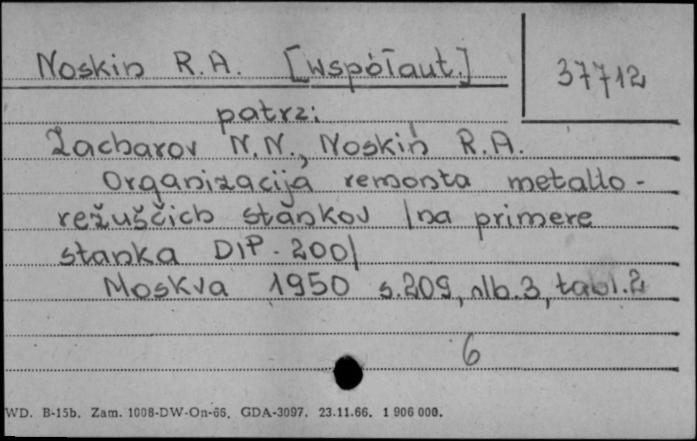 Noskin R.A. [współaut.]
37712
patrz:
Zacharov N.N., Noskin R.A.
Organizacija remonta metallo-
režuščich stankov /na primere
stanka DIP-200/
Moskva 1950 s.209, nlb.3, tabl.2
6
WD. B-15b. Zam. 1008-DW-On-66. GDA-3097. 23.11.66. 1 906 000.